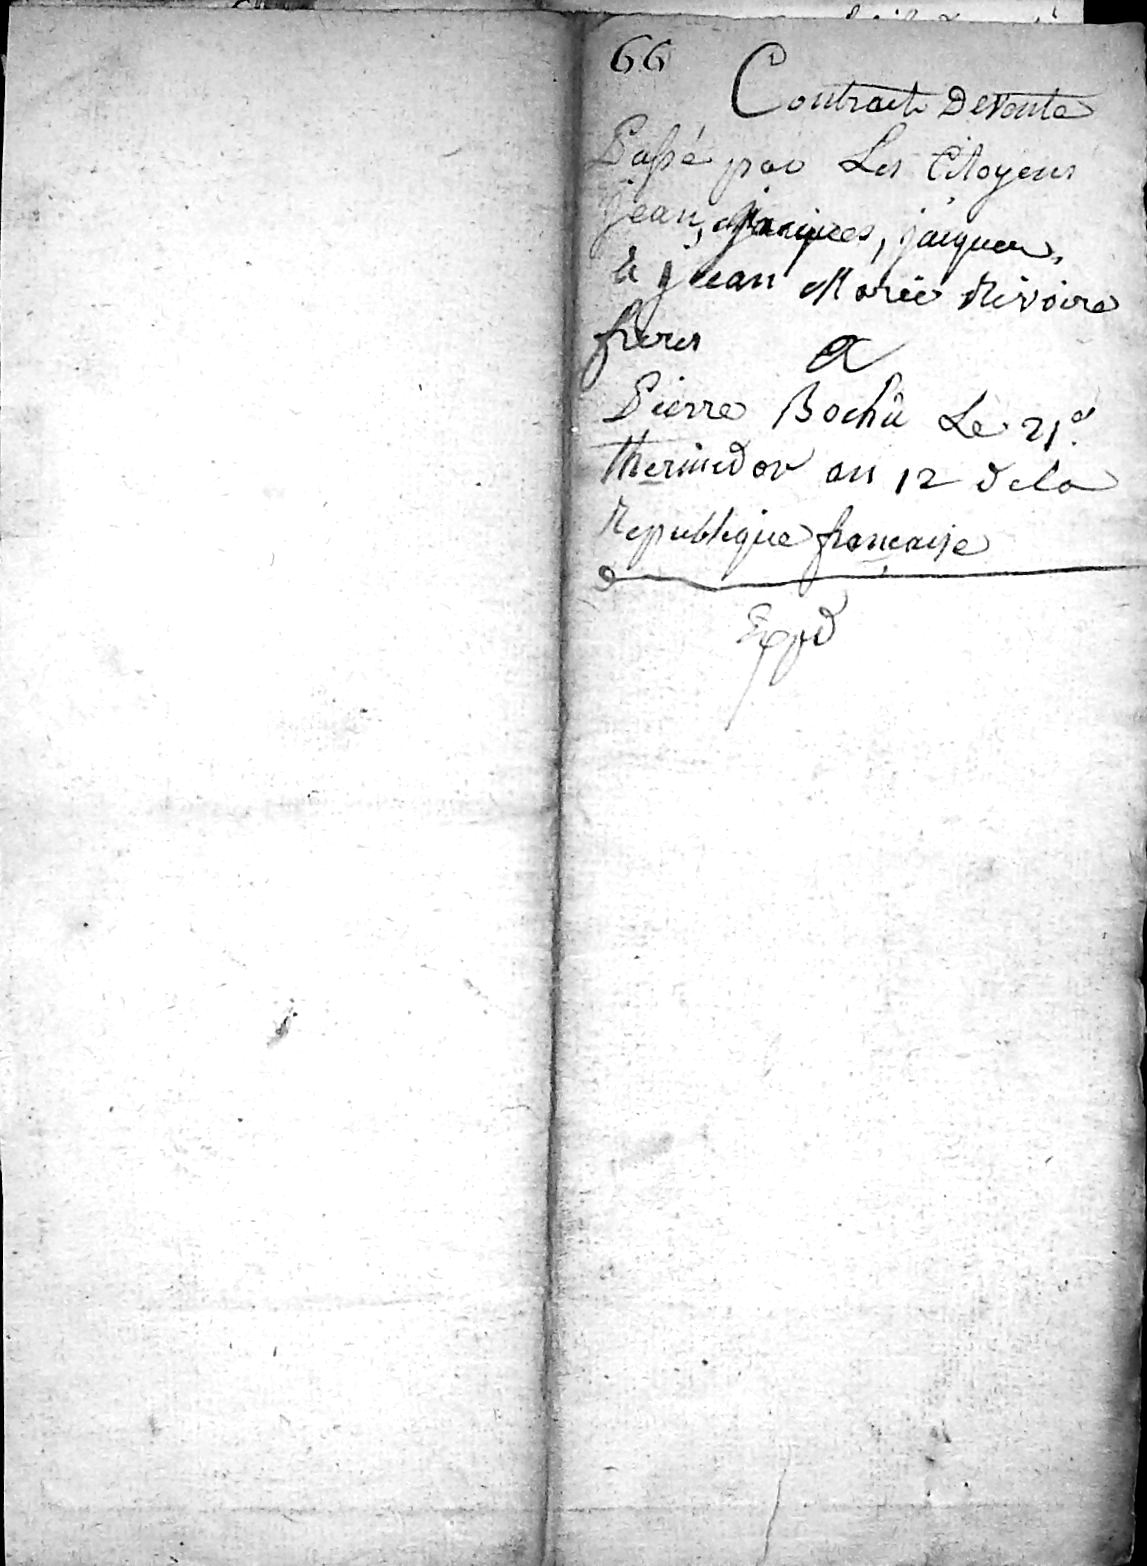 66
Contrait De Vente
Passé par Les Citoyens
jean, jacques, jacques,
& jean Marie Rivoire
freres
A
Pierre Bochû Le 21e
thermidor an 12 de la
Republique française
Expd